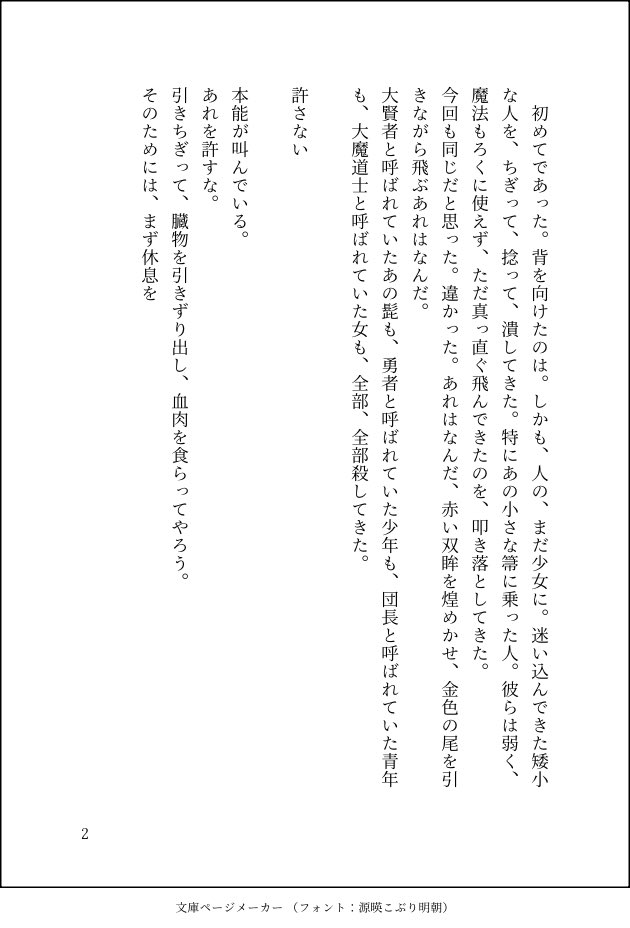 初めてであった。背を向けたのは。しかも、人の、まだ少女に。迷い込んできた矮小
な人を、ちぎって、捻って、潰してきた。特にあの小さな箒に乗った人。彼らは弱く、
魔法もろくに使えず、ただ真っ直ぐ飛んできたのを、叩き落としてきた。
今回も同じだと思った。違かった。あれはなんだ、赤い双眸を煌めかせ、金色の尾を引
きながら飛ぶあれはなんだ。
大賢者と呼ばれていたあの髭も、勇者と呼ばれていた少年も、団長と呼ばれていた青年
も、大魔道士と呼ばれていた女も、全部、全部殺してきた。
許さない
本能が叫んでいる。
あれを許すな。
引きちぎって、臓物を引きずり出し、血肉を食らってやろう。
そのためには、まず休息を
2
文庫ページメーカー （フォント：源暎こぶり明朝）